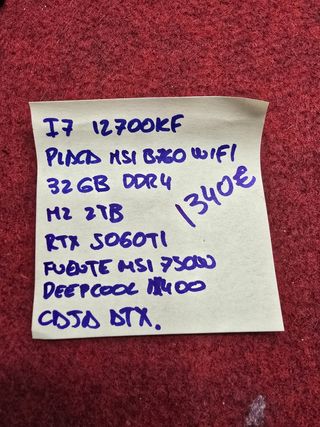 I7 12700KF
PLACA MSI B760 WIFI
32GB DDR4
M2 2TB
1340€
RTX 5060TI
FUENTE MSI 750W
DEEPCOOL 400
CAJA ATX.